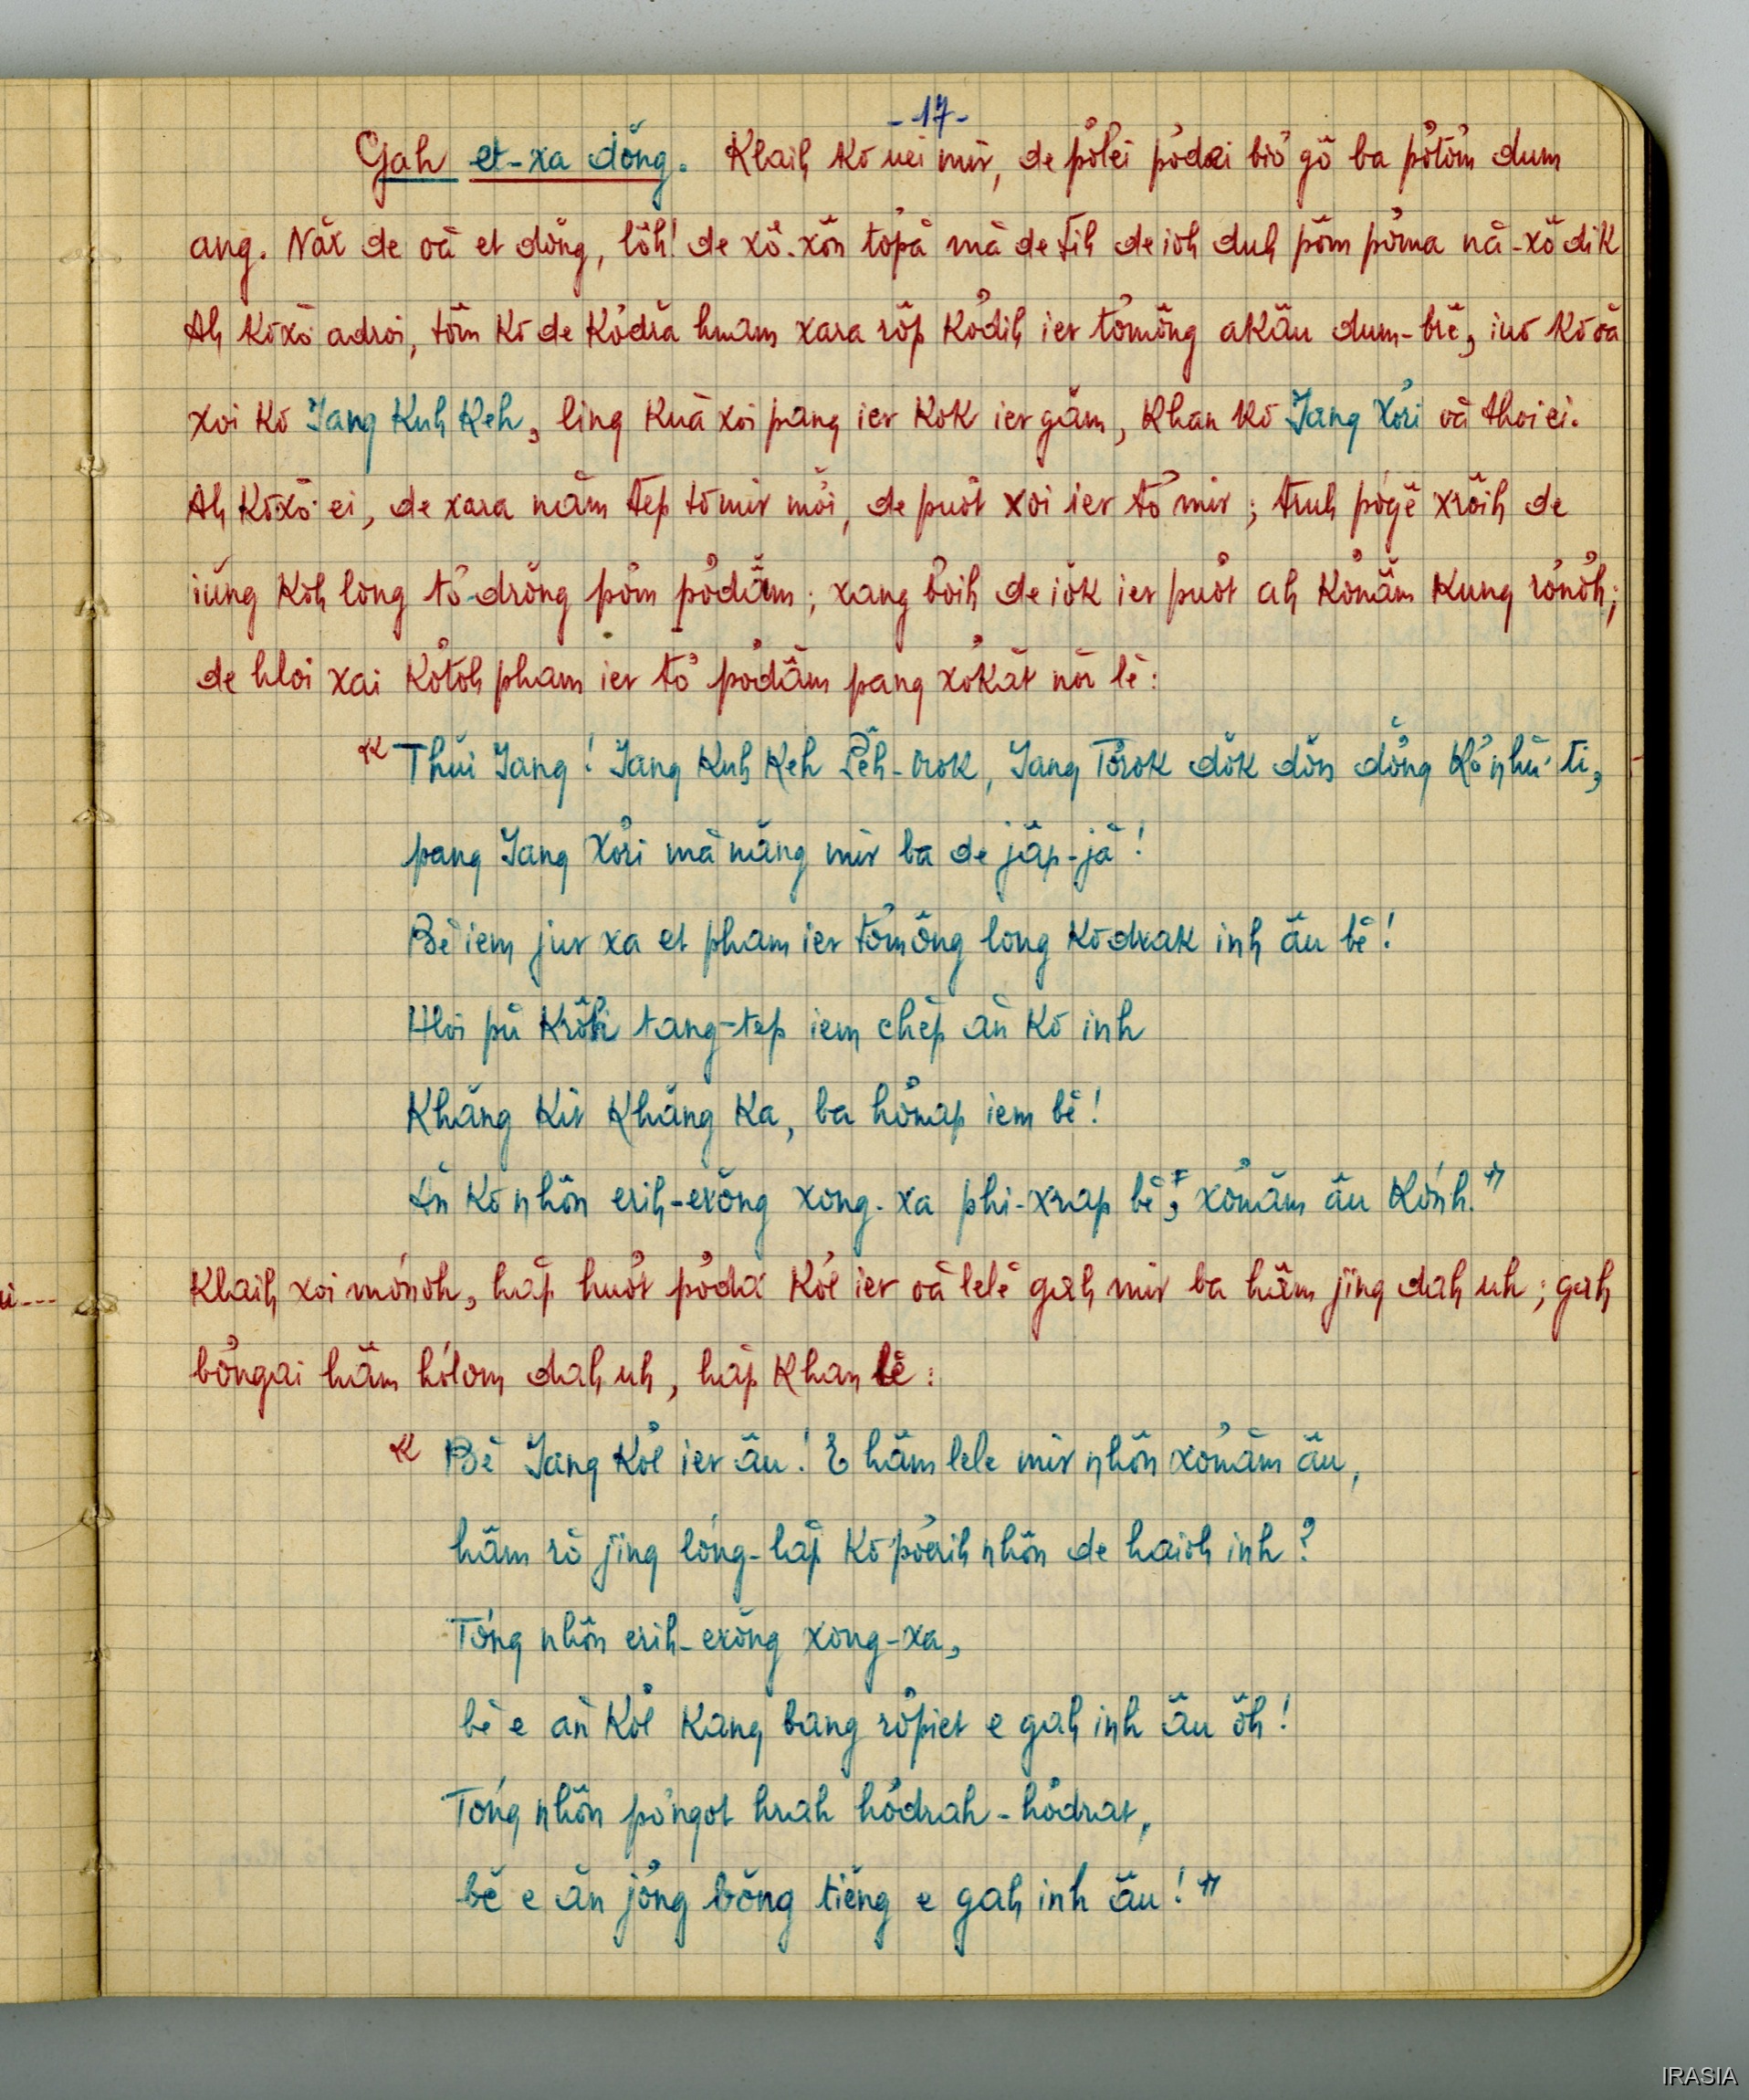 -17-
Gah et-xa dŏng. Klaih kơ uei mir, de pơlei pơdei biơ̆ gô ba pơtơm dum
ang. Năr de oă et dŏng, lŏh! de xơ̆-xŏn tơpă mă de tih de ioh duh pơm pơma nă-xơ̆ dik
Ah kơxơ̆ adroi, tơm kơ de kơdră hnam xara rŏp kơdih ier tơmông akău dum-brĕ, iuơ kơ oă
xoi kơ Jang Kuh Keh, ling kuă xoi pang ier kok ier găm, khan kơ Jang Xơri oă thoi ei.
Ah kơxơ̆ ei, de xara năm tep tơ mir mơ̆i, de puơ̆t xoi ier tơ̆ mir; truh pơgĕ xrơ̆ih de
iŭng koh long tơ̆-drŏng pơm pơdăm; xang bơ̆ih de iŏk ier puơ̆t ah kơnăm kung rơnơ̆h;
de hloi xai kơtoh pham ier tơ̆ pơdăm pang xơkăt nơ̆r lĕ:
« Thŭi Jang! Jang Kuh Keh Pĕh-Brok, Jang Tơrok dŏk dŏn dŏng kơ nhŭ ti,
pang Jang Xơri mă năng mir ba de jăp-jă!
Bĕ iem jur xa et pham ier tơmông long kơdrak inh ău bĕ!
Hloi pŭ krơ̆i tang-tep iem chĕp ăn kơ inh
Khăng kir khăng ka, ba hơnap iem bĕ!
Ăn kơ nhôn erih-erŏng xong-xa phi-xrap bĕ, xơnăm ău kơ̆nh. »
Klaih xoi mơ̆nơh, hăp huơ̆t pơda kơ̆l ier oă lelĕ gah mir ba hăm jing dah uh; gah
bơngai hăm hơ̆lom dah uh, hăp khan lĕ:
« Bĕ Jang kơ̆l ier ău! E hăm lele mir nhôn xơnăm ău,
hăm rơ̆ jing lơ̆ng-lăp kơ pơerih nhôn de haioh inh?
Tơ̆ng nhôn erih-erŏng xong-xa,
bĕ e ăn kơ̆l kang bang rơpiet e gah inh ău ŏh!
Tơ̆ng nhôn pơngot hrah hơdrah-hơdrat,
bĕ e ăn jơ̆ng bŏng tiĕng e gah inh ău! »
IRASIA